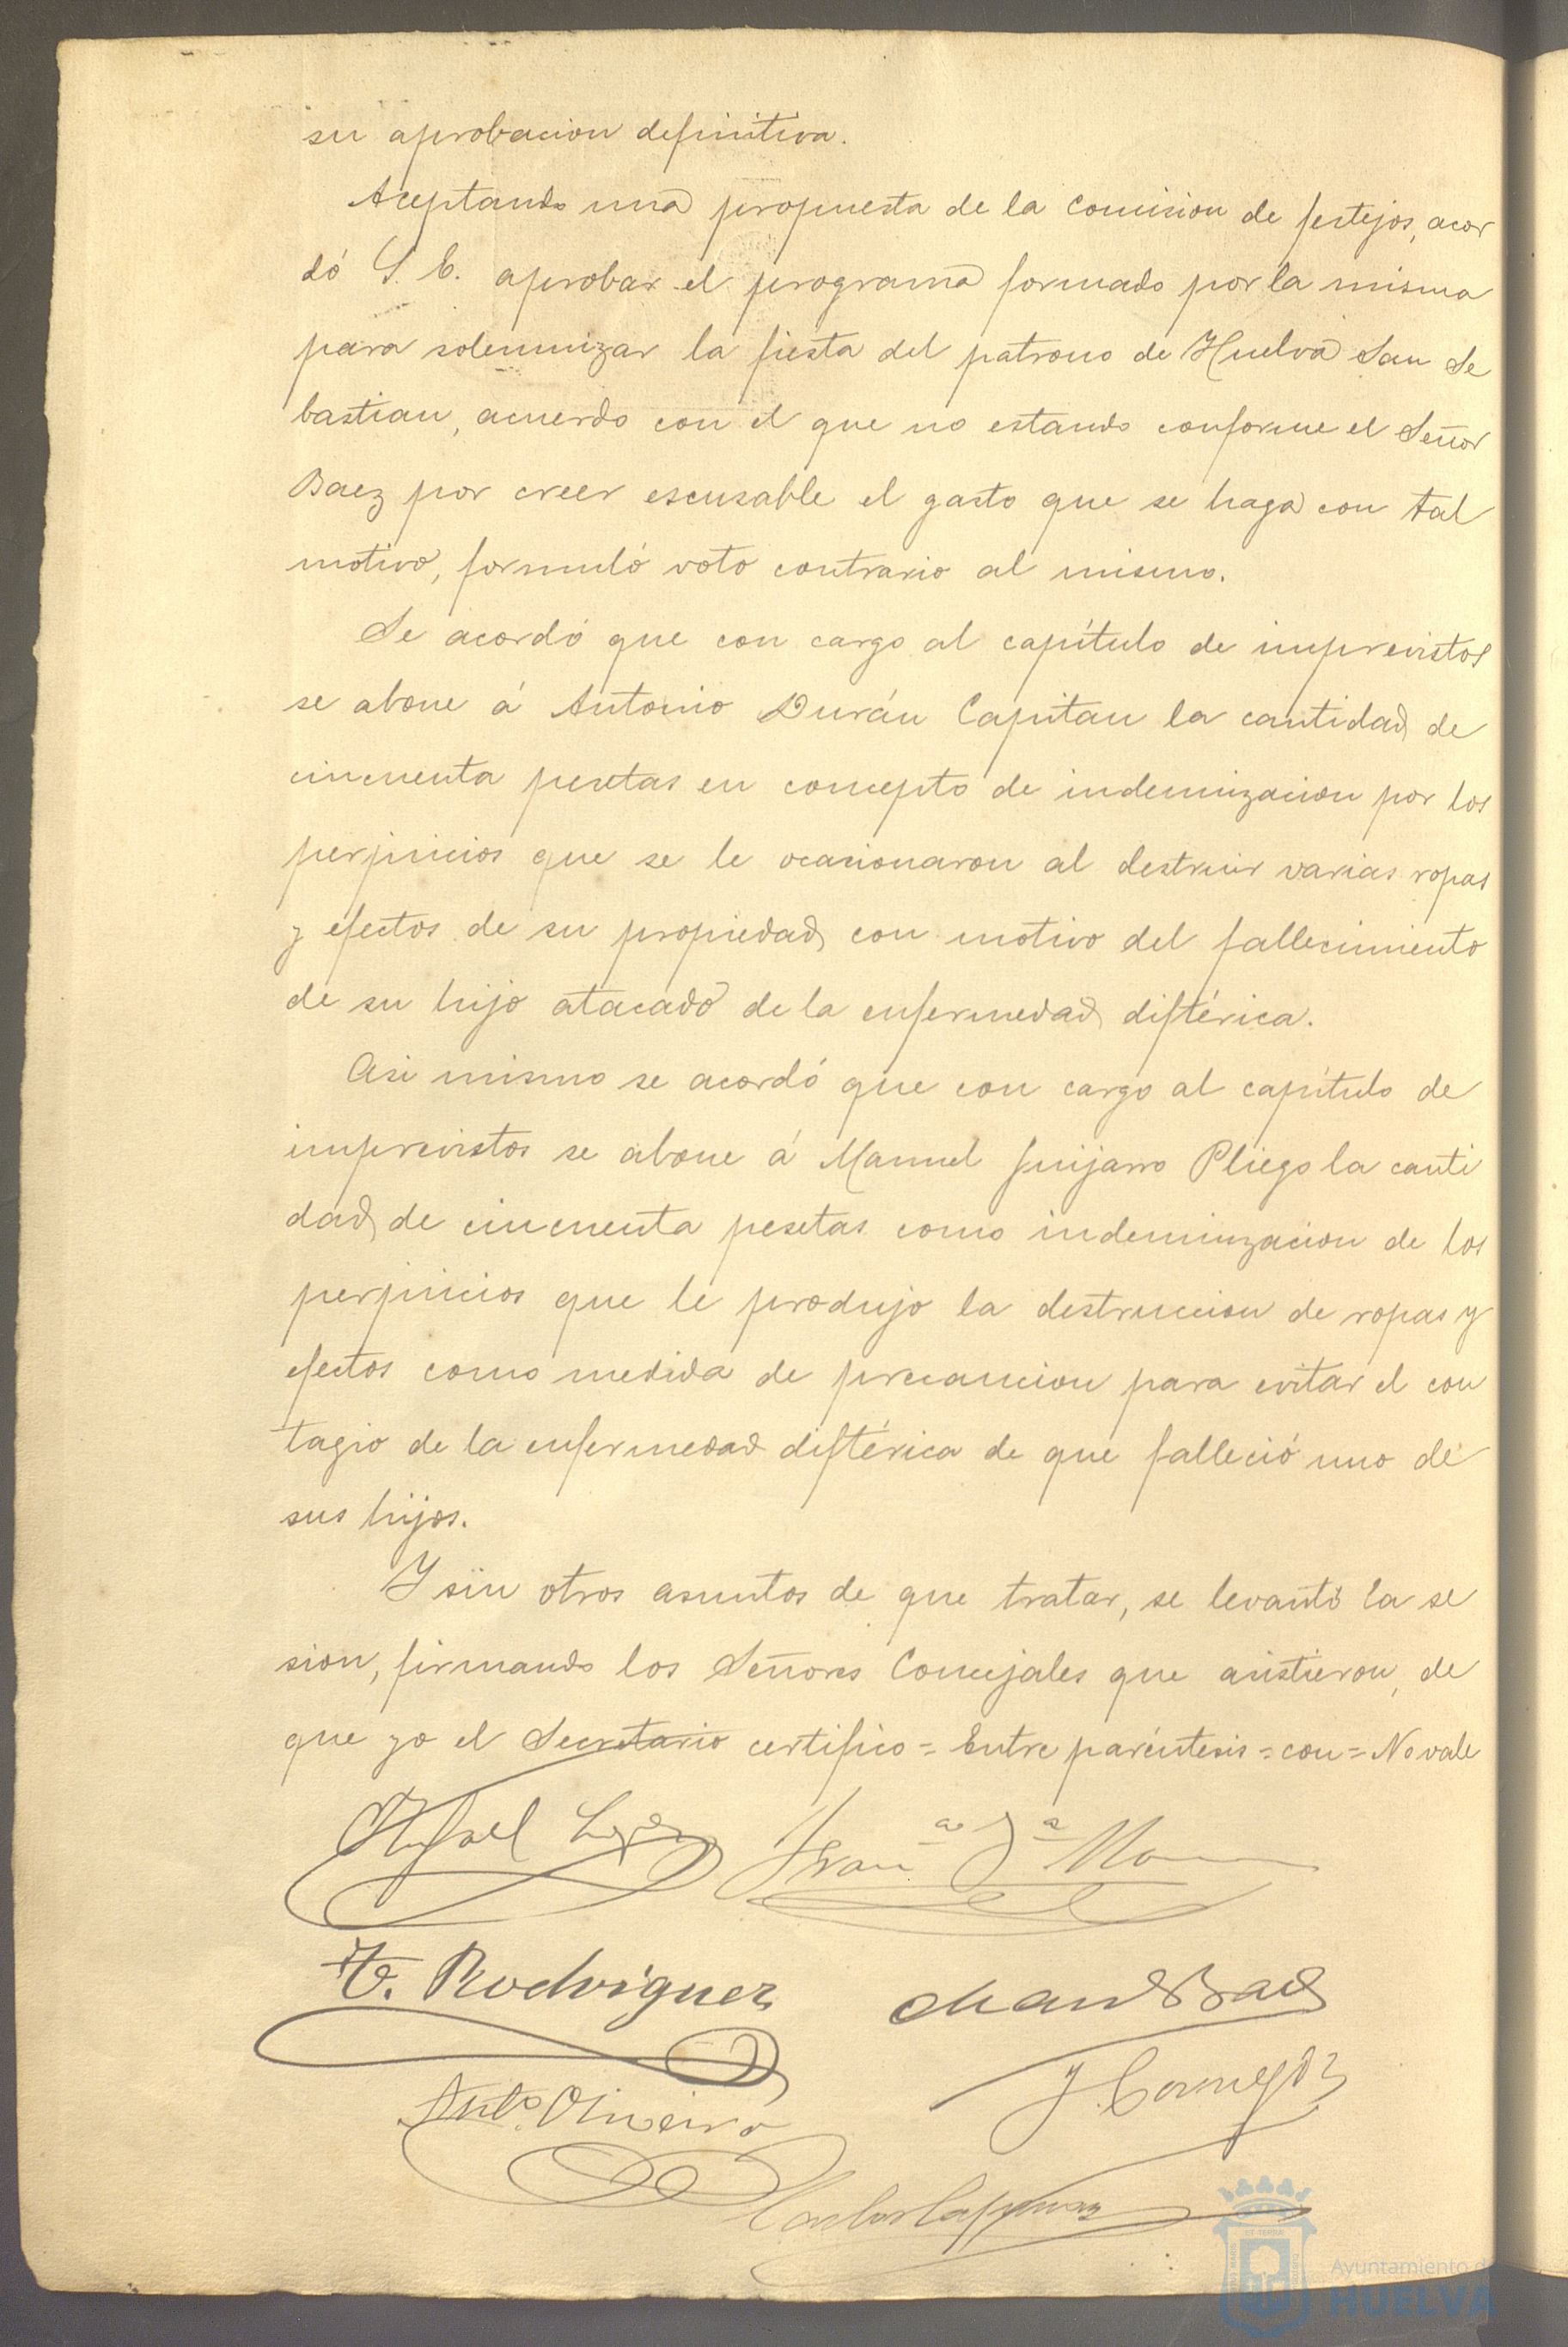 su aprobacion definitiva.
Aceptando una propuesta de la Comision de festejos, acor
dó S. E. aprobar el programa formado por la misma
para solemnizar la fiesta del patrono de Huelva San Se
bastian, acuerdo con el que no estando conforme el Señor
Baez por creer escusable el gasto que se haga con tal
motivo, formuló voto contrario al mismo.
Se acordó que con cargo al capítulo de imprevistos
se abone á Antonio Durán Capitan la cantidad de
cincuenta pesetas en concepto de indemnizacion por los
perjuicios que se le ocasionaron al destruir varias ropas
y efectos de su propiedad con motivo del fallecimiento
de su hijo atacado de la enfermedad diftérica.
Asi mismo se acordó que con cargo al capítulo de
imprevistos se abone á Manuel Guijarro Pliego la canti
dad de cincuenta pesetas como indemnizacion de los
perjuicios que le produjo la destruccion de ropas y
efectos como medida de precaucion para evitar el con
tagio de la enfermedad diftérica de que falleció uno de
sus hijos.
Y sin otros asuntos de que tratar, se levantó la se
sion, firmando los Señores Concejales que asistieron, de
que yo el Secretario certifico = Entre paréntesis = con = No vale
Rafael Lopez
F. Rodriguez
Manl Baez
Anto. Oliveira
Ayuntamiento de
HUELVA